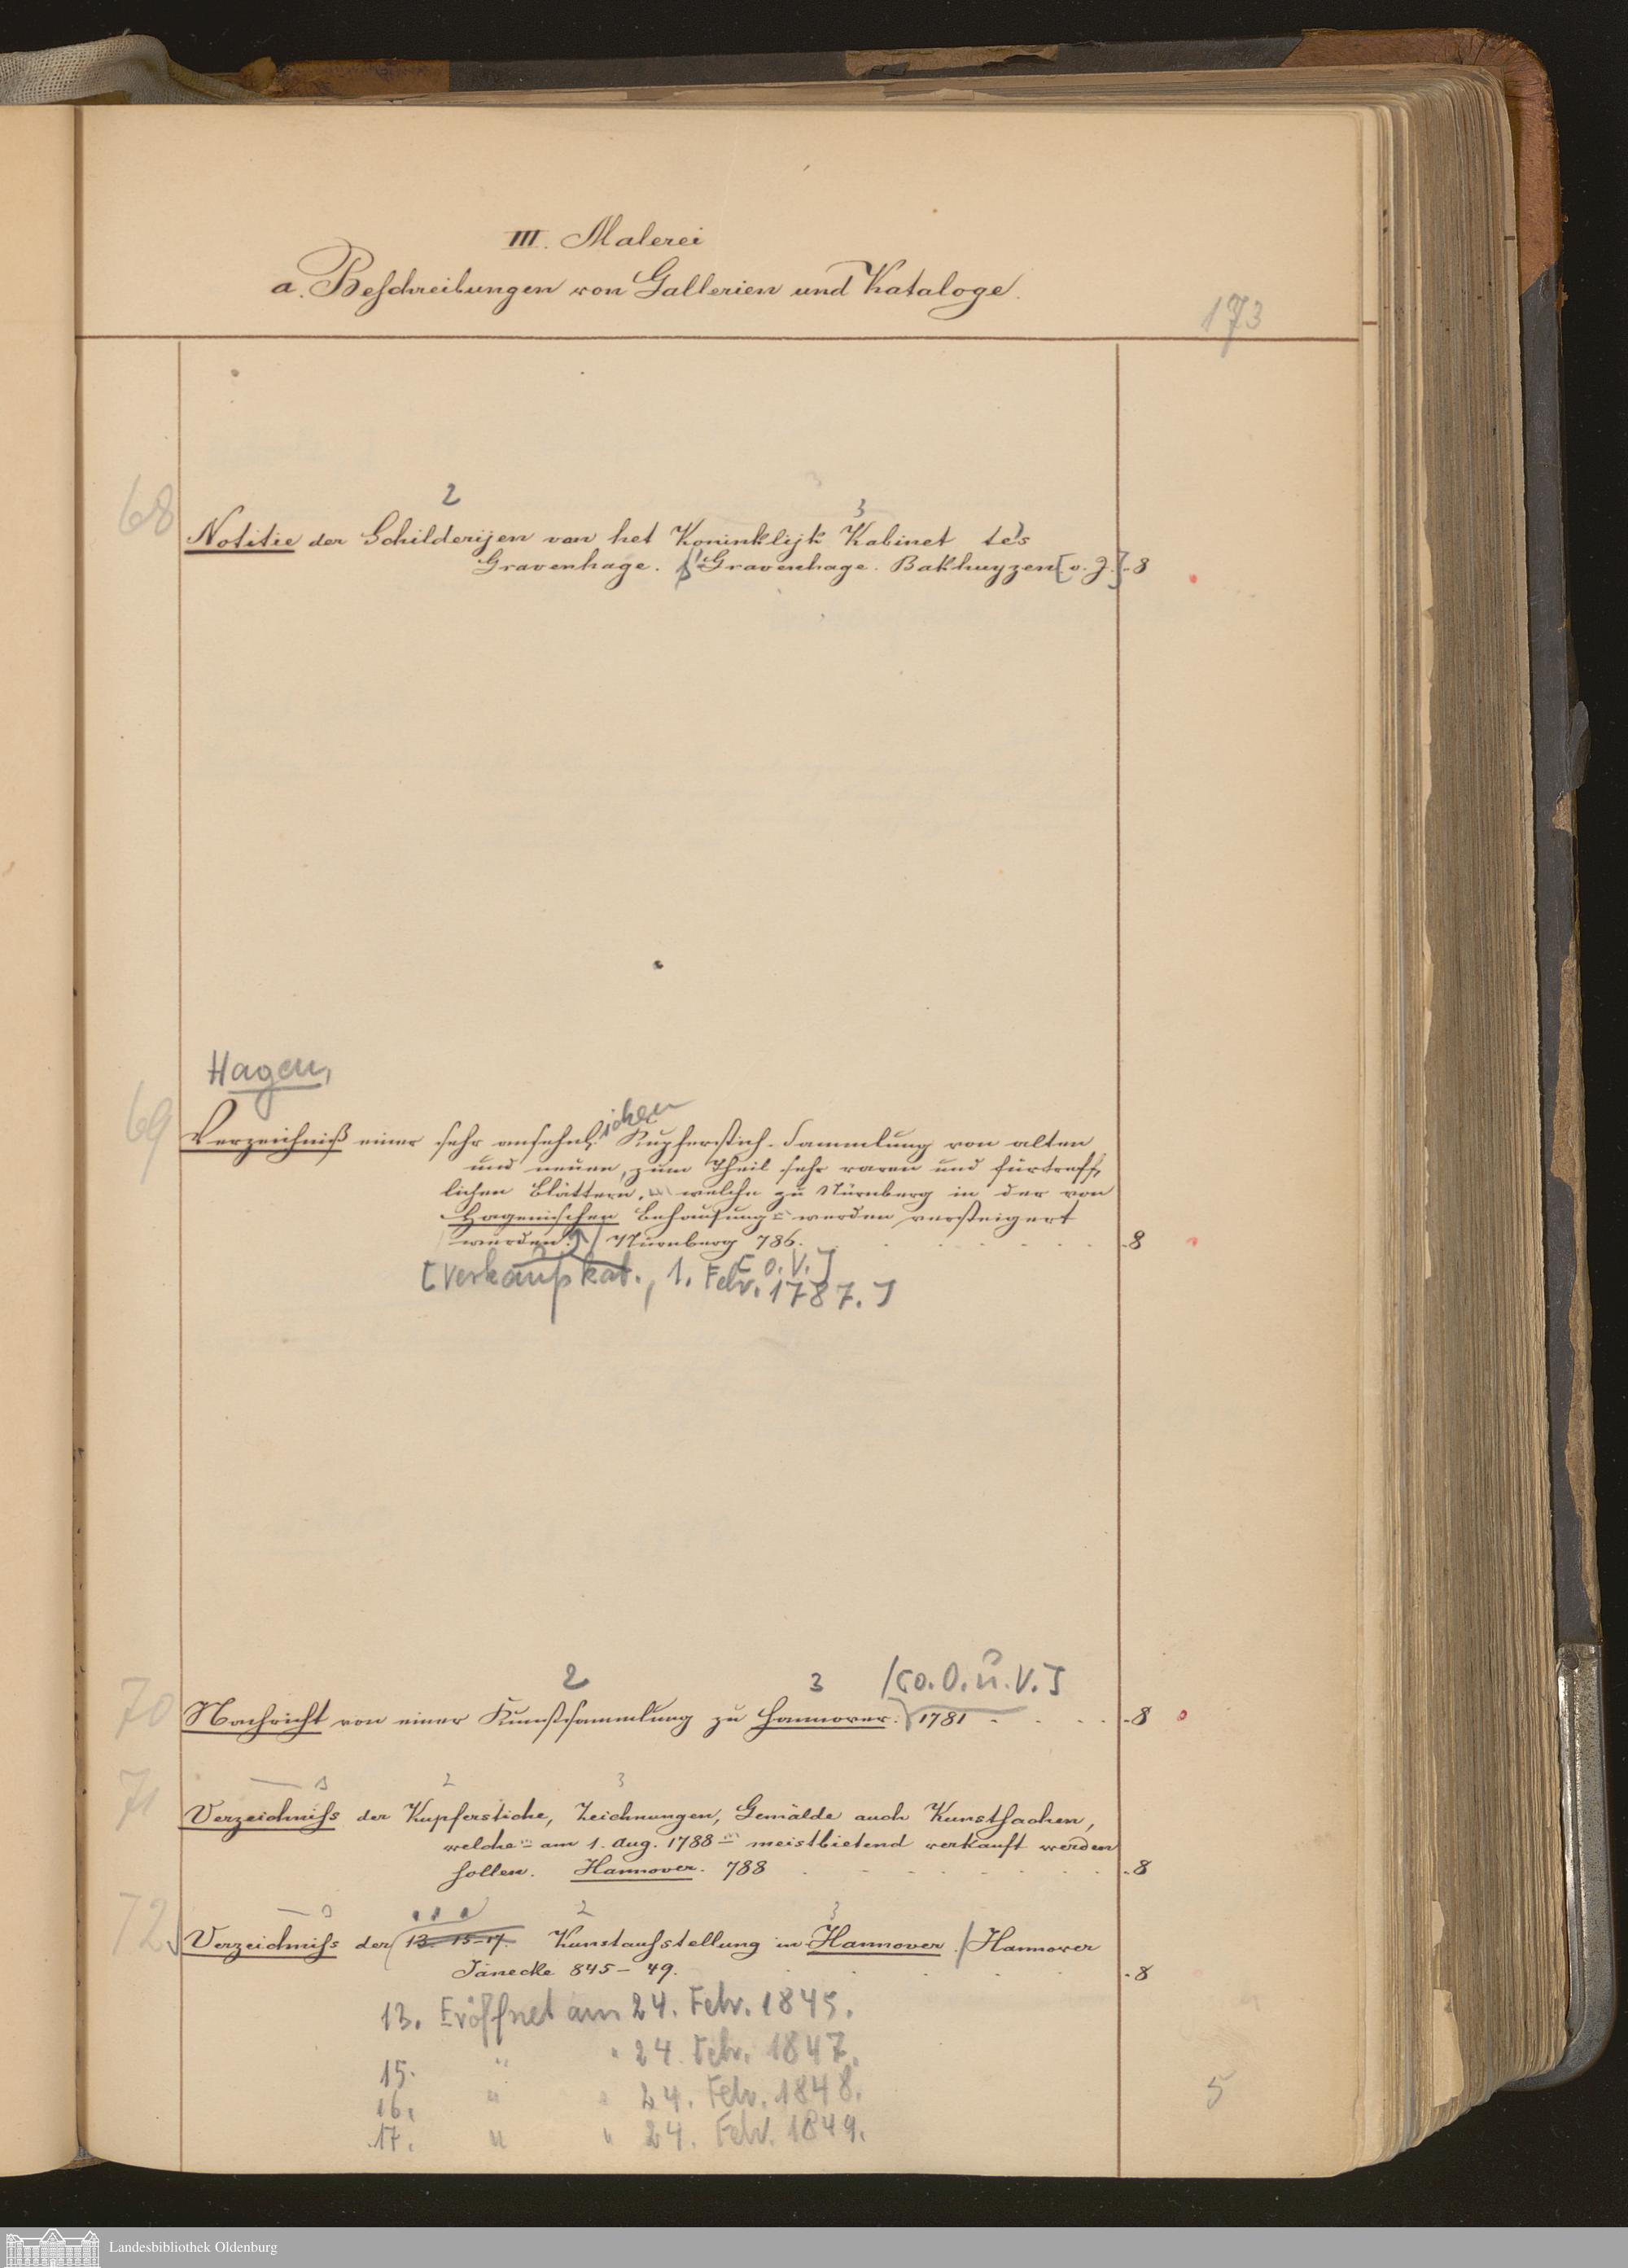 III. Malerei
a. Beschreibungen von Gallerien und Kataloge.
173
2
3
68
Notitie der Schilderijen van het Koninklijk Kabinet te's
Gravenhage. s'Gravenhage. Bakhuyzen [o. J.] 8
Hagen,
69
Verzeichniß einer sehr ansehnlichen Kupferstich-Sammlung von alten
und neuen, zum Theil sehr raren und fürtreff-
lichen Blättern, welche zu Nürnberg in der von
Hagenischen Behausung werden versteigert
werden. Nürnberg 786. 8
[o. V.]
[Verkaufskat., 1. Febr. 1787.]
2 3 [o. O. u. V.]
70
Nachricht von einer Kunstsammlung zu Hannover. 1781 8
71
1 2 3
Verzeichniss der Kupferstiche, Zeichnungen, Gemälde auch Kunstsachen,
welche am 1. Aug. 1788 meistbietend verkauft werden
sollen. Hannover. 788 8
72
1 2 3
Verzeichniss der 13. 15-17. Kunstausstellung in Hannover. Hannover
Jänecke 845-49. 8
13. Eröffnet am 24. Febr. 1845.
15. " " 24. Febr. 1847.
16. " " 24. Febr. 1848.
17. " " 24. Febr. 1849.
5
Landesbibliothek Oldenburg